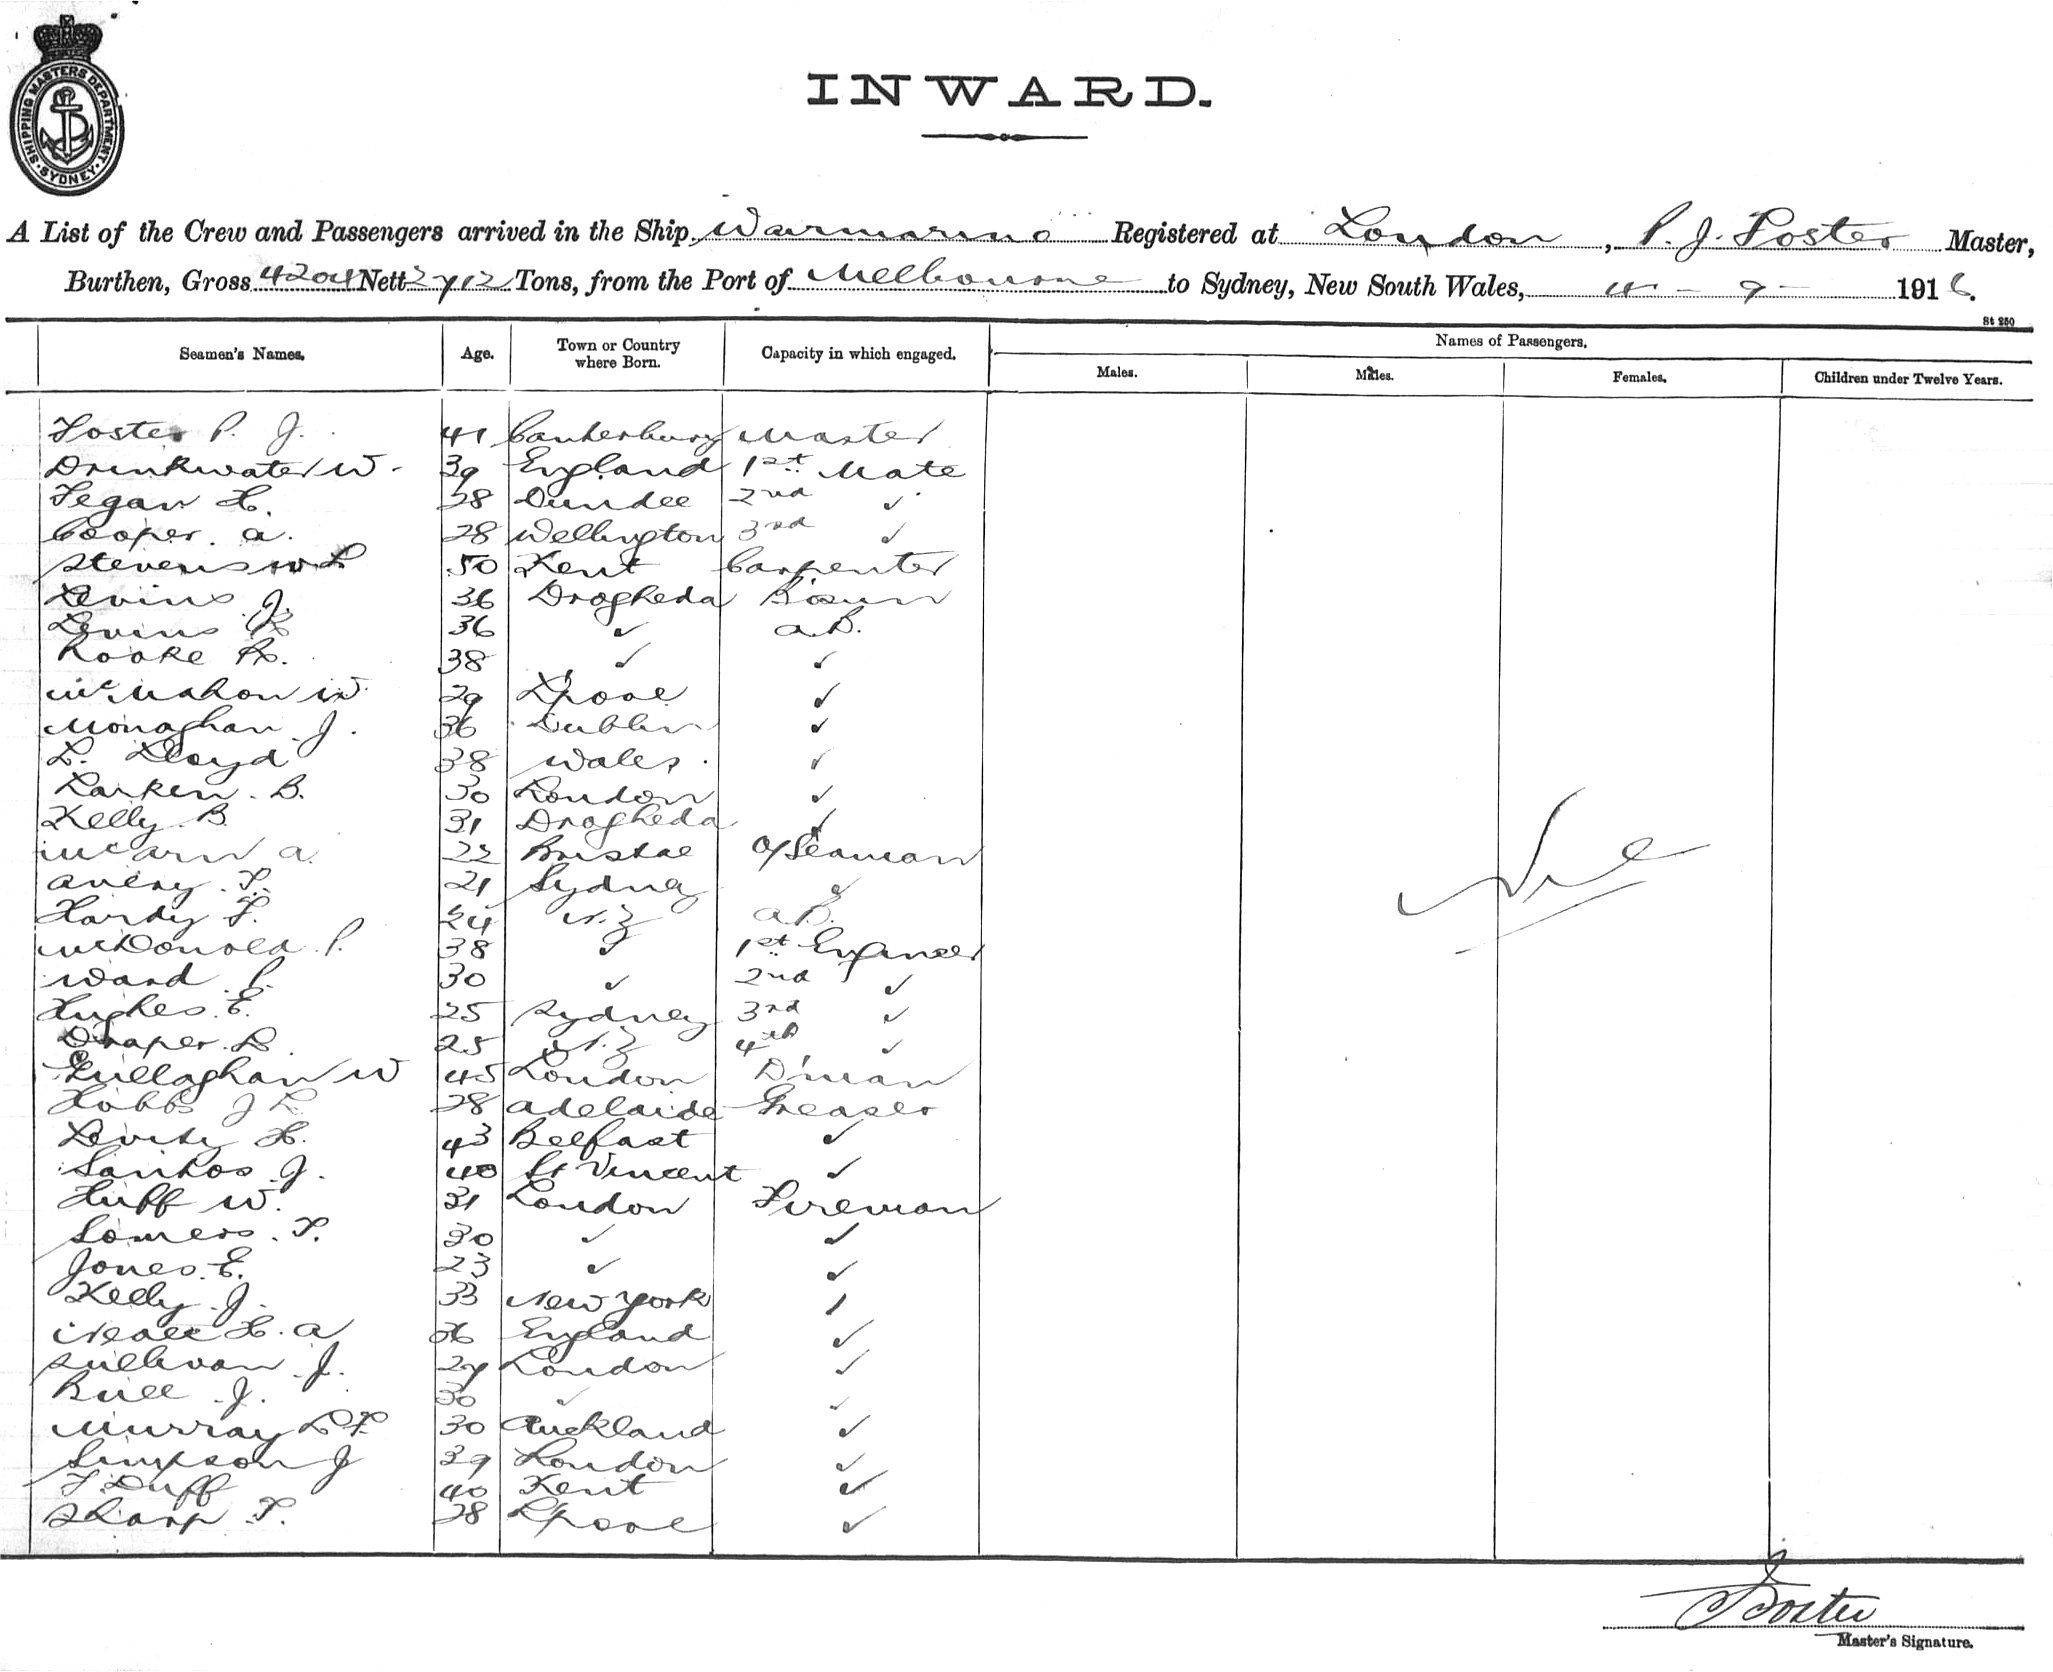 SHIPPING MASTERS DEPARTMENT
SYDNEY
INWARD.
A List of the Crew and Passengers arrived in the Ship Waimarino Registered at London, P. J. Foster Master,
Burthen, Gross 4204 Nett 2712 Tons, from the Port of Melbourne to Sydney, New South Wales, 4 - 9 - 1916.
St 250
Seamen's Names. Age. Town or Country where Born. Capacity in which engaged. Names of Passengers.
Males. Males. Females. Children under Twelve Years.
Foster P. J. 41 Canterbury Master
Drinkwater W. 39 England 1st Mate
Fegan H. 28 Dundee 2nd ✓
Cooper. A. 28 Wellington 3rd ✓
Stevens W. L 50 Kent Carpenter
Levins J. 36 Drogheda Bosun
Levins 36 ✓ A.B.
Rooke 38 ✓ ✓
McMahon W. 29 L'pool ✓
Monaghan. J. 36 Dublin ✓
L. Lloyd 38 Wales. ✓
Larken. B. 30 London ✓
Kelly. B 31 Drogheda ✓
McCann A. 22 Bristol O/Seaman
Avery. T. 21 Sydney ✓
Hardy F. 24 N.Z A.B.
McDonald. P. 38 ✓ 1st Engineer
Ward. P. 30 ✓ 2nd ✓
Hughes. E. 25 Sydney 3rd ✓
Draper. L. 25 N.Z 4th ✓
Gullaghan W 45 London D'man
Hobbs J L 28 Adelaide Greaser
Levity H. 43 Belfast ✓
Santos. J. 40 St Vincent ✓
Huff W. 31 London Fireman
Somers. T. 30 ✓ ✓
Jones. E. 23 ✓ ✓
Kelly. J. 33 New York ✓
Neate H. A 36 England ✓
Sullivan. J. 27 London ✓
Bull. J. 30 ✓ ✓
Murray L.F. 30 Auckland ✓
Simpson J 39 London ✓
F. Duff 40 Kent ✓
Sharp T. 28 L'pool ✓
Nil
Foster
Master's Signature.